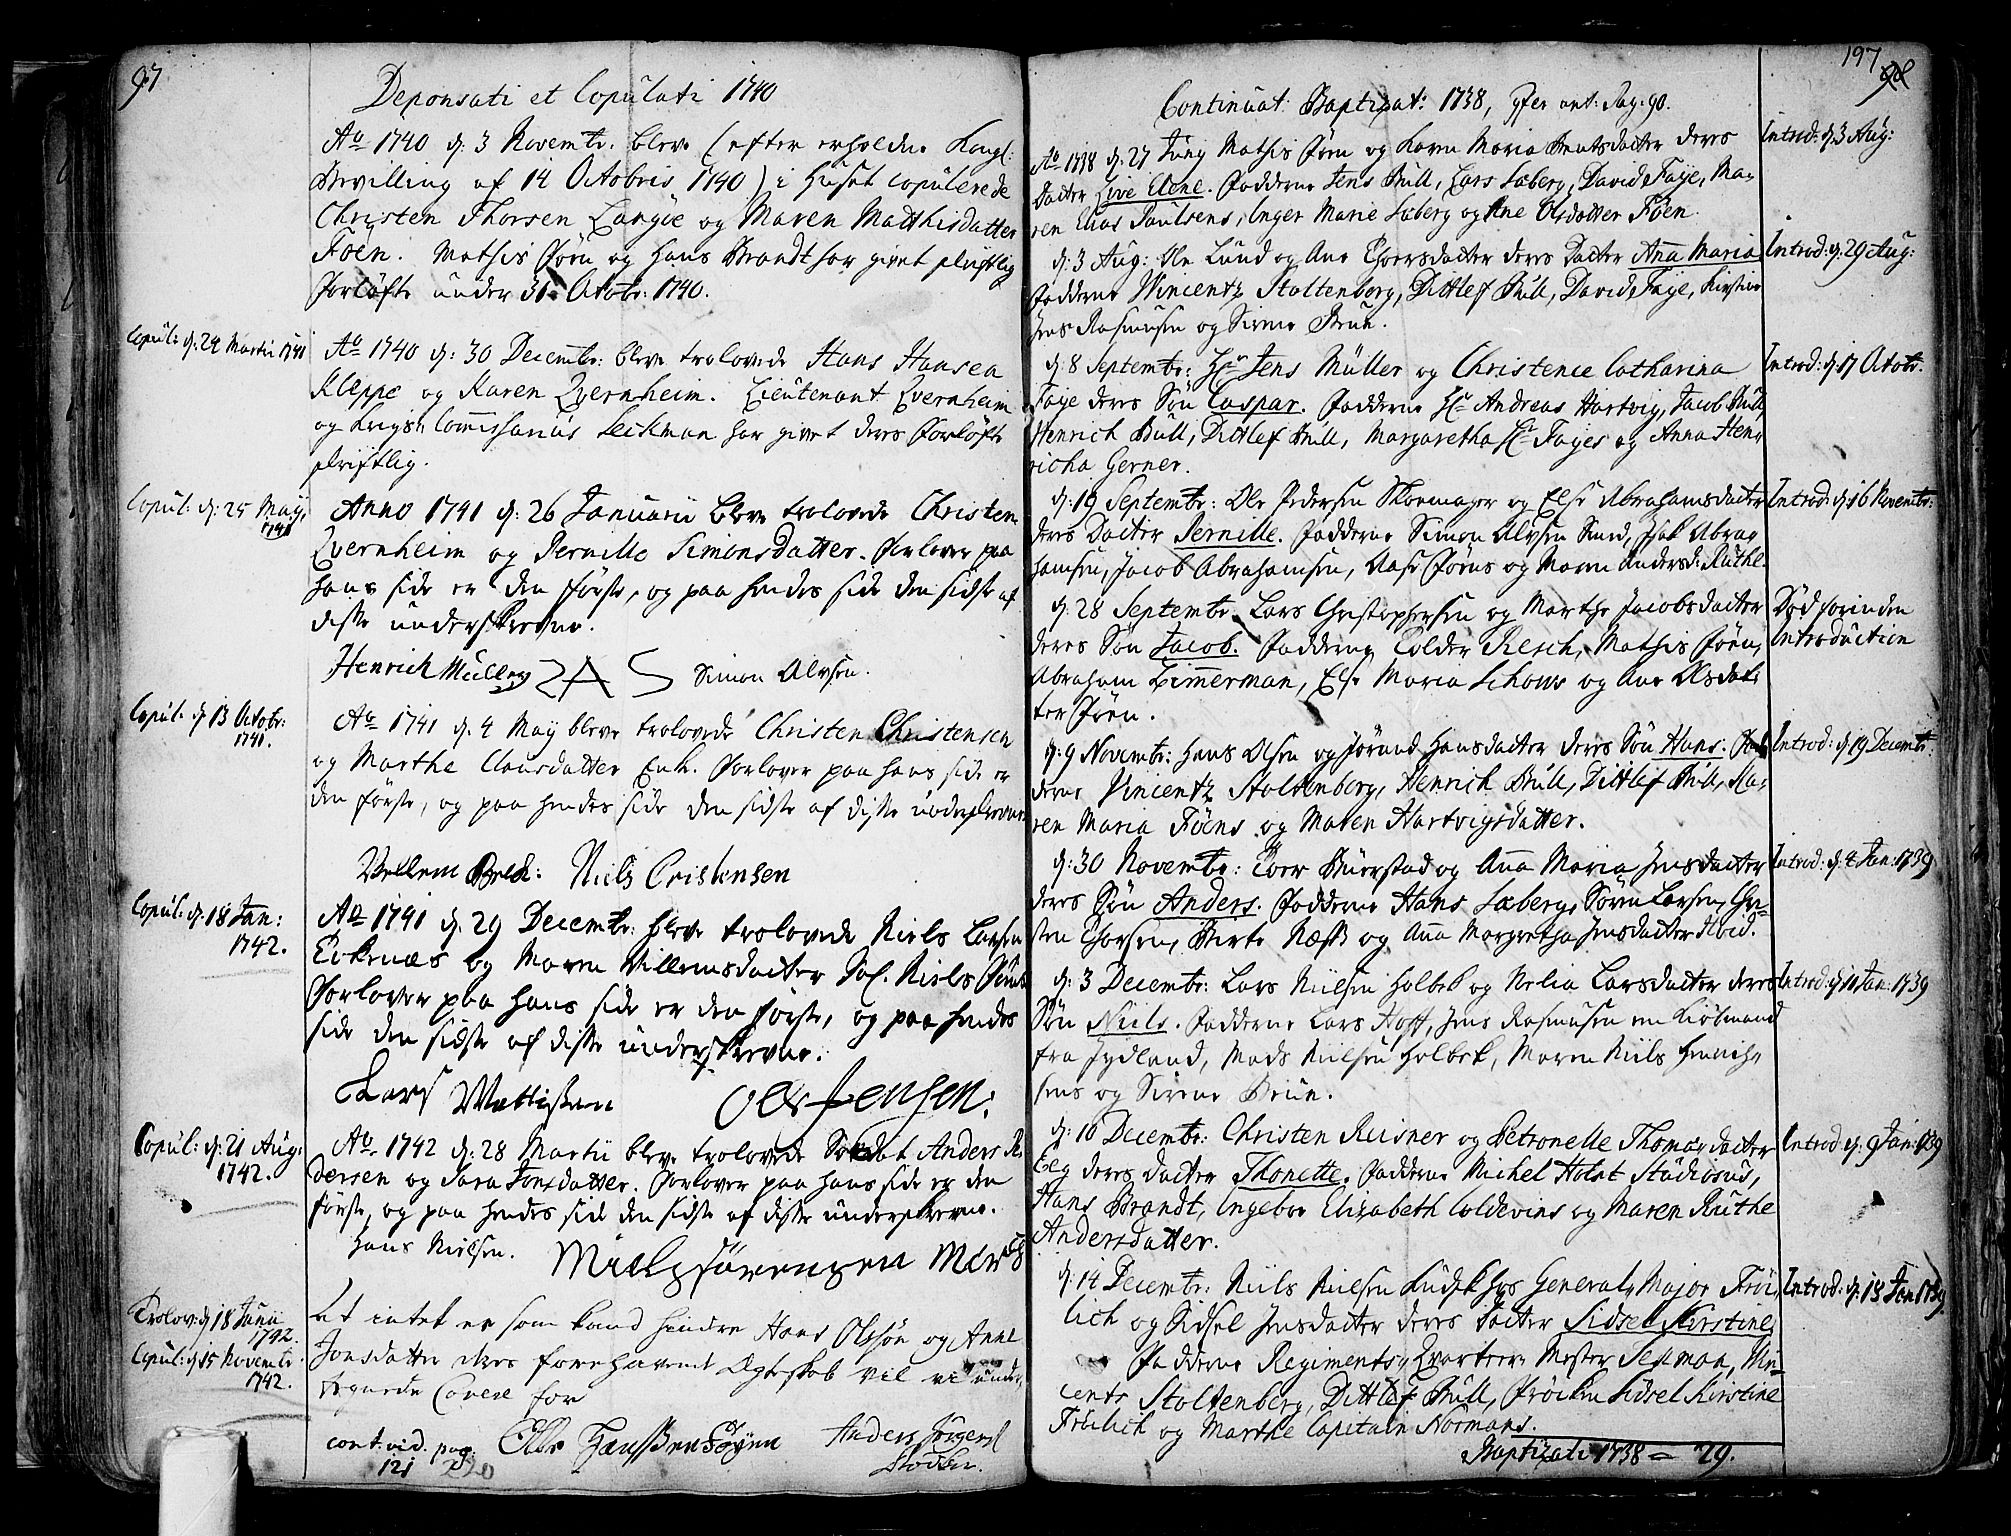 97
Deponsati et Copulati 1740
Ao 1740 d: 3 Novembr. blev (efter erholden Kongl:
Bevilling af 14 Octobris 1740) i Huset copulerede
Christen Thorsen Langöe og Maren Matthisdatter
Föen. Mathis Föen og Hans Brandt har givet skriftlig
Forløfte under 31 Octobr: 1740.
Copul: d: 24 Martii 1741
Ao 1740 d: 30 Decembr: bleve trolovede Hans Hansen
Kleppe og Karen Qvernheim. Lieutenant Qvernheim
og Krigs Commissarius Leckman har givet deres Forløfte
skriftlig.
Copul: d: 25 Maij
1741
Anno 1741 d: 26 Januarii bleve trolovede Christen
Qvernheim og Pernille Simonsdatter. Forlover paa
hans side er den første, og paa hendes side den sidste af
disse underskrevne.
Henrich Müller Simon Alvsen.
Copul: d: 13 Octobr:
1741.
Ao 1741 d. 4 Maij bleve trolovede Christen Christensen
og Marthe Clausdatter Enk. Forlover paa hans side er
den første, og paa hendes side den sidste af disse underskrevne
Vellem Niels Cristensen
Copul: d: 18 Jan:
1742.
Ao 1741 d. 29 Decembr: bleve trolovede Niels Larsen
og Maren Villemsdatter Sal. Niels
Forlover paa hans side er den første, og paa hendes
side den sidste af disse underskrevne.
Lars Mattissen Ole Jensen:
Copul: d: 21 Aug:
1742.
Ao. 1742 d: 28 Martii bleve trolovede Soldat Anders
dersen og Sara Jonsdatter. Forlover paa hans side er den
første, og paa hendes side den sidste af disse underskrevne.
Hans Nielsen.
Trolov: d 18 Junii
1742.
Copul: d 15 Novembr.
1742.
At intet er som kand hindre Hans Olssøn og Anne
Jonsdatter deres forehavende Ægteskab vil vi under
tegnede Cavere for
cont. vid. pag: Anders
121 220
197
98
Continuat: Baptizat: 1738, fter ant: Pag: 90.
Ao 1738 d: 27 Julij Mathis Föen og Karen Maria Bentsdatter deres
Introd: d: 3 Aug:
Datter Live Elene. Faddere Jens Bull, Lars Sæberg, David Faye, Ma-
ren Elias Paulsens, Inger Marie Sæberg og Ane Olsdatter Föen.
d: 3 Aug: Ole Lund og Ane Thorsdatter deres Datter Ana Maria
Introd: d: 29 Aug:
Faddere Vincentz Stoltenberg, Dittlef Bull, David Faye, Kirstine
Jens Rasmusen og Sirene Brun.
d: 8 Septembr: Hr Jens Müller og Christence Catharina
Introd: d: 17 Octobr.
Faye deres Søn Caspar. Faddere Hr Andreas Hartvig, Jacob Bull
Henrich Bull, Dittlef Bull, Margaretha Hr Fayes og Anna Hen
richa Gerner.
d: 19 Septembr: Ole Pedersen Skomager og Else Abrahamsdatter
Introd: d: 16 Novembr:
deres Datter Pernille. Faddere Simon Alvsen Smed, Isak Abra
hamsen, Jacob Abrahamsen, Aase Föens og Maren Andersd: Ruthe.
d: 28 Septembr. Lars Christophersen og Marthe Jacobsdatter
Død forinden
Introduction
deres Søn Jacob. Faddere Tolder Resch, Mathis Föen,
Abraham Zimmerman, Else Maria Schows og Ane Olsdat
ter Föen.
d: 9 Novembr: Hans Olsen og Jörand Hansdatter deres Søn Hans: Fad
Introd: d: 19 Decembr:
dere Vincentz Stoltenberg, Henrich Bull, Dittlef Bull, Ka-
ren Maria Föens og Maren Hartvigsdatter.
d: 30 Novembr: Toer Buerstad og Ana Maria Jensdatter
Introd: d: 4 Jan: 1739
deres Søn Anders. Faddere Hans Sæberg, Søren Larsen, Chri-
sten Thorsen, Birte Næss og Ana Margretha Jensdatter Hvid.
d: 3 Decembr: Lars Nielsen Holbek og Nelia Larsdatter deres
Introd: d: 11 Jan: 1739
Søn Niels. Faddere Lars Hoff, Jens Rasmusen en Kiöbmand
fra Jydland, Mads Nielsen Holbek, Maren Niels Henrich
sens og Sirene Brun.
d: 10 Decembr: Christen Reisner og Petronelle Thomasdatter
Introd: d: 9 Jan: 1739
Eeg deres datter Thonette. Faddere Michel Holst Studiosus,
Hans Brandt, Ingebor Elizabeth Coldevins og Maren Ruthe
Andersdatter.
d: 14 Decembr: Niels Nielsen Kudsk hos General Major Frö
Introd: d: 13 Jan 1739
lich og Sidsel Jensdatter deres Datter Sidsel Kirstine
Faddere Regiments Qvarteer Mester Tejman, Vin
cents Stoltenberg, Dittlef Bull, Fröiken Sidsel Kirstine
Frölich og Marthe Capitain Normans.
Baptizati 1738 = 29.